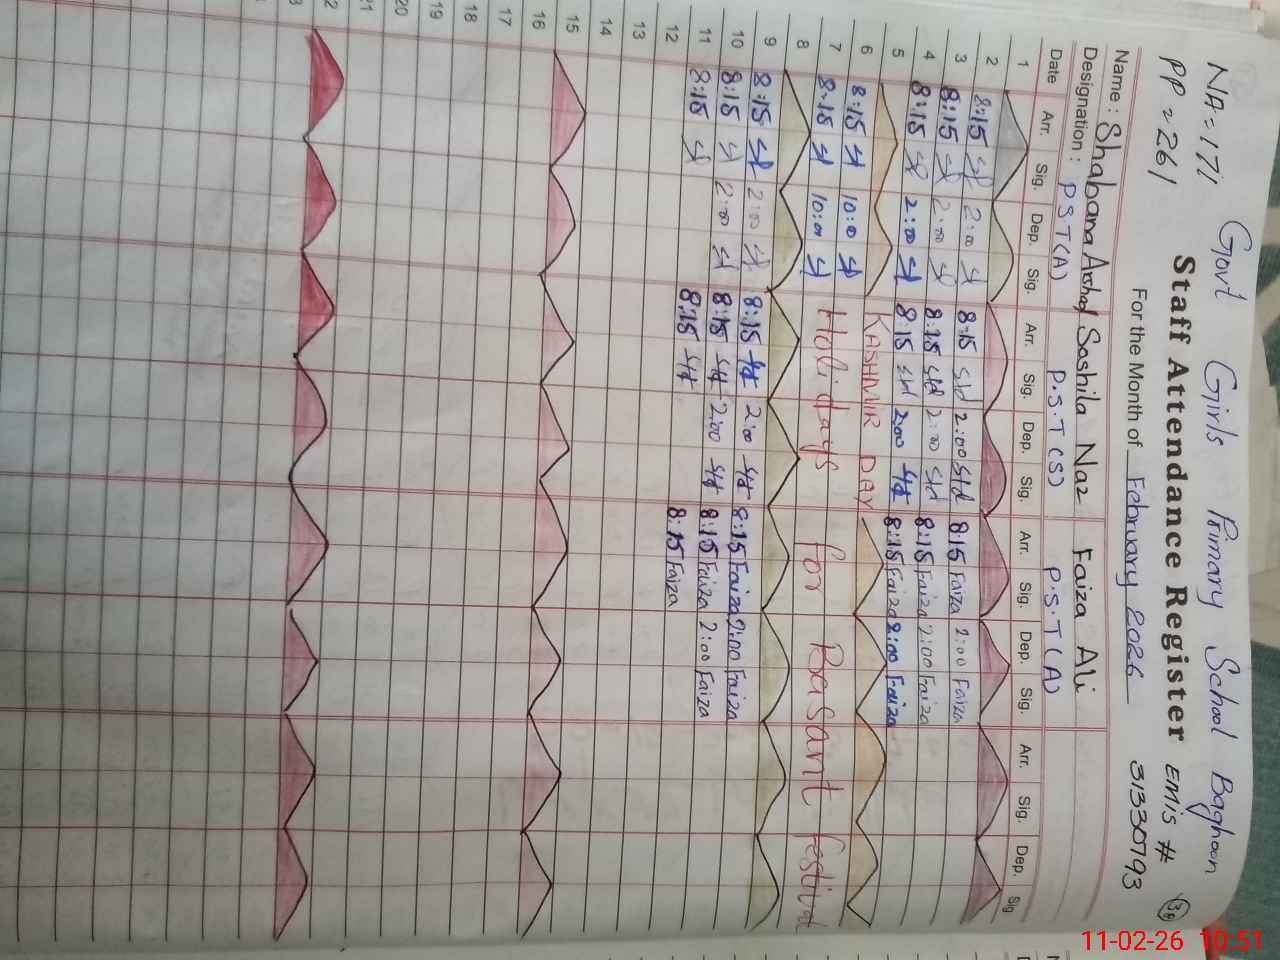 Govt Girls Primary School Baghoon
NA = 171
Staff Attendance Register EMIS #
PP = 261
For the Month of February 2026 31330793
Name : Shabana Arshad Sashila Naz Faiza Ali
Designation : P.S.T (A) P.S.T (S) P.S.T (A)
Date Arr. Sig. Dep. Sig. Arr. Sig. Dep. Sig. Arr. Sig. Dep. Sig. Arr. Sig. Dep. Sig
1
2 8:15 2:00 8:15 2:00 8:15 Faiza 2:00 Faiza
3 8:15 2:00 8:15 2:00 8:15 Faiza 2:00 Faiza
4 8:15 2:00 8:15 2:00 8:15 Faiza 2:00 Faiza
5 KASHMIR DAY
6 8:15 10:0
7 8:15 10:01 Holidays for Basant Festival
8
9 8:15 2:00 8:15 2:00 8:15 Faiza 2:00 Faiza
10 8:15 2:00 8:15 2:00 8:15 Faiza 2:00 Faiza
11 8:15 8:15 8:15 Faiza
12
13
14
15
16
17
18
19
20
21
22
11-02-26 10:51